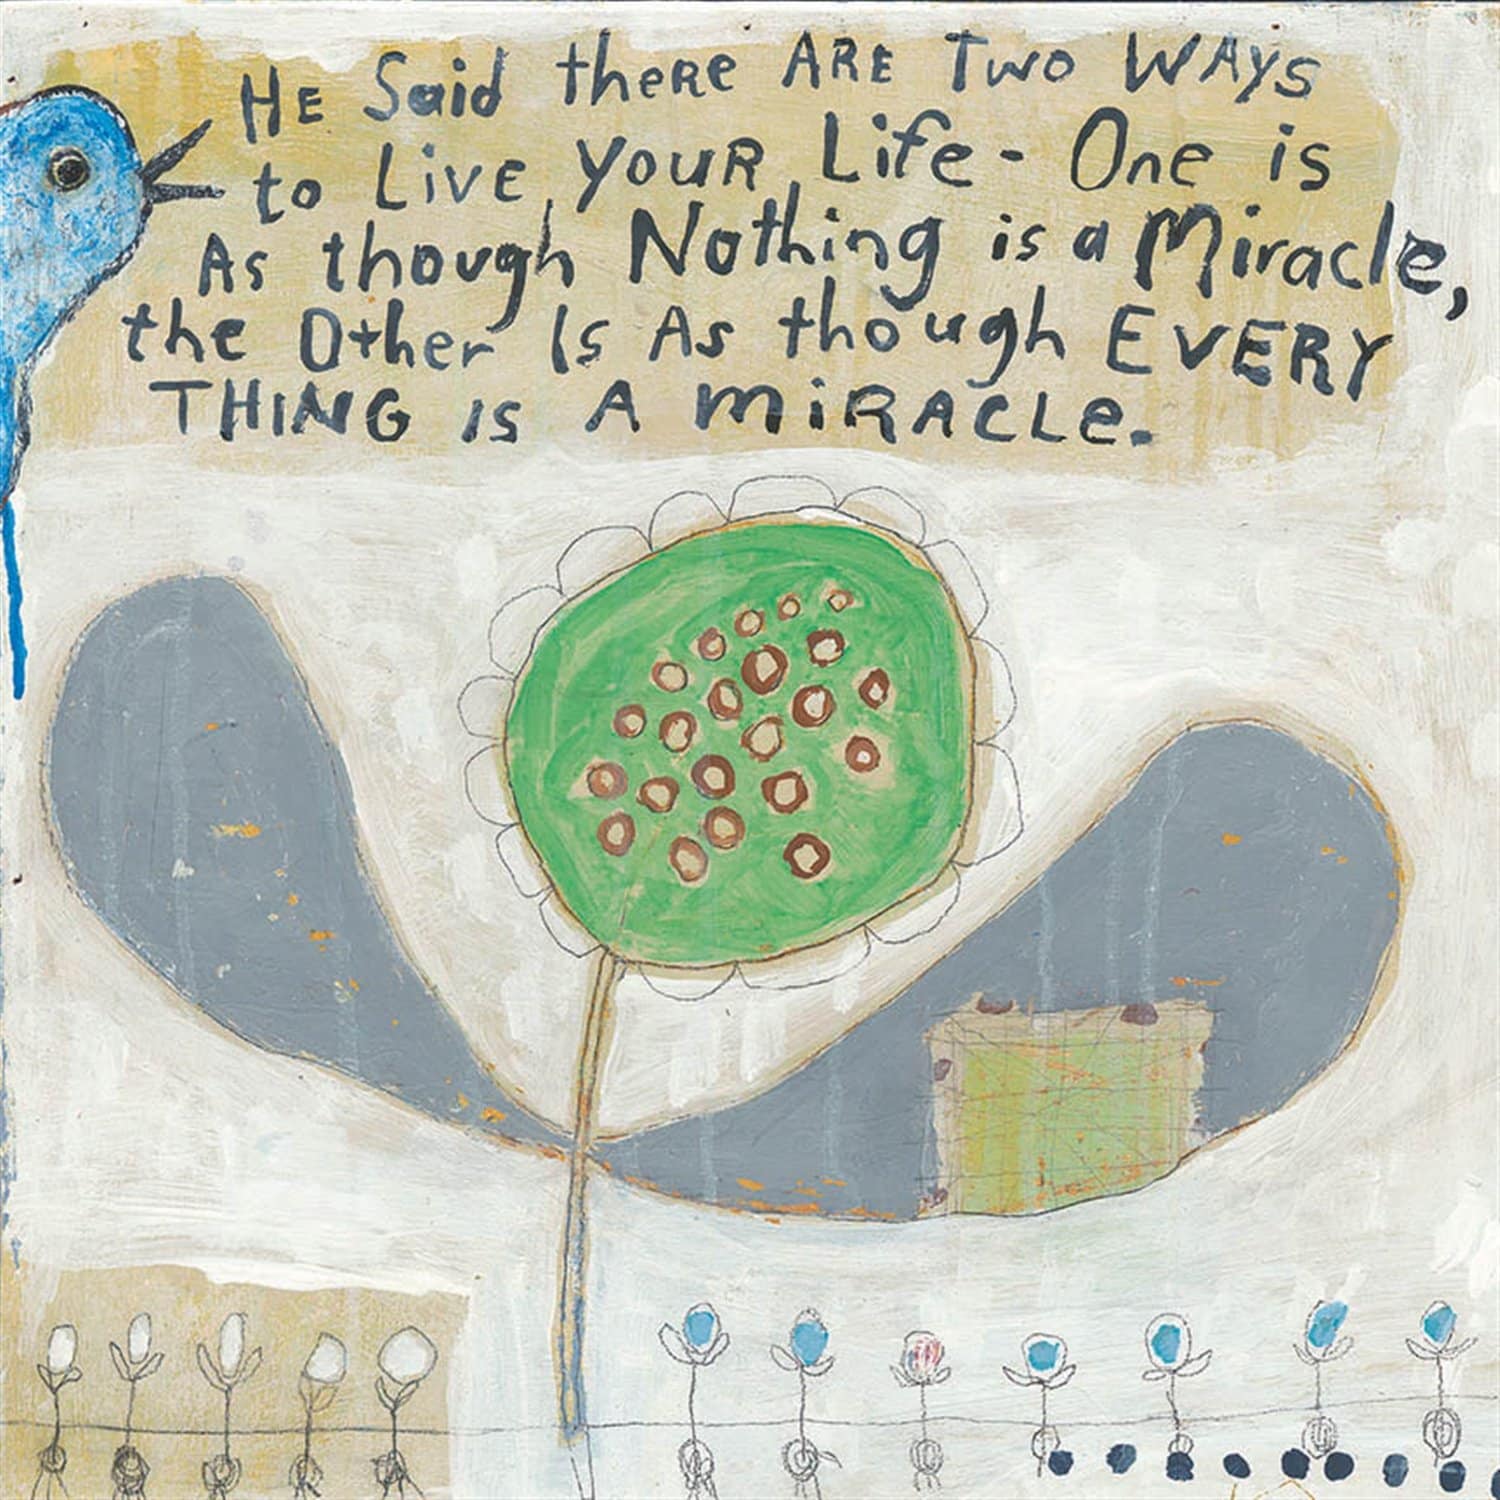 HE Said theRe ARE Two WAYS
to Live YOUR Life - One is
As though Nothing is a Miracle,
the Other Is As though EVERY
THING is A MiRACLe.